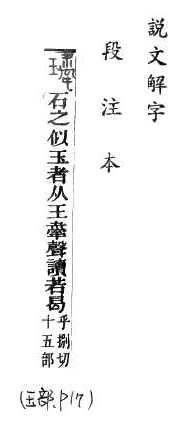 說文解字
段注本
石之似玉者从王舝聲讀若曷
乎捌切
十五部
(玉部.P17)